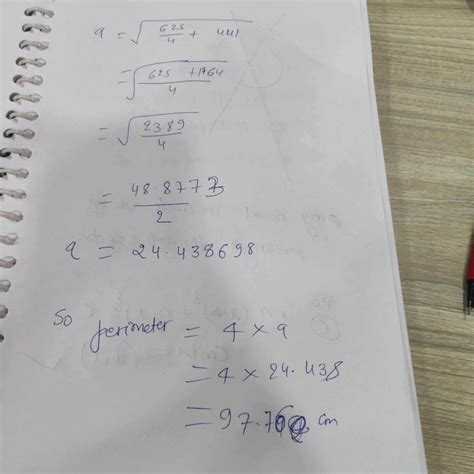 a = √(625/4 + 441)
= √((625 + 1764)/4)
= √(2389/4)
= 48.8773/2
a = 24.438698
So perimeter = 4 × a
= 4 × 24.438
= 97.76 cm